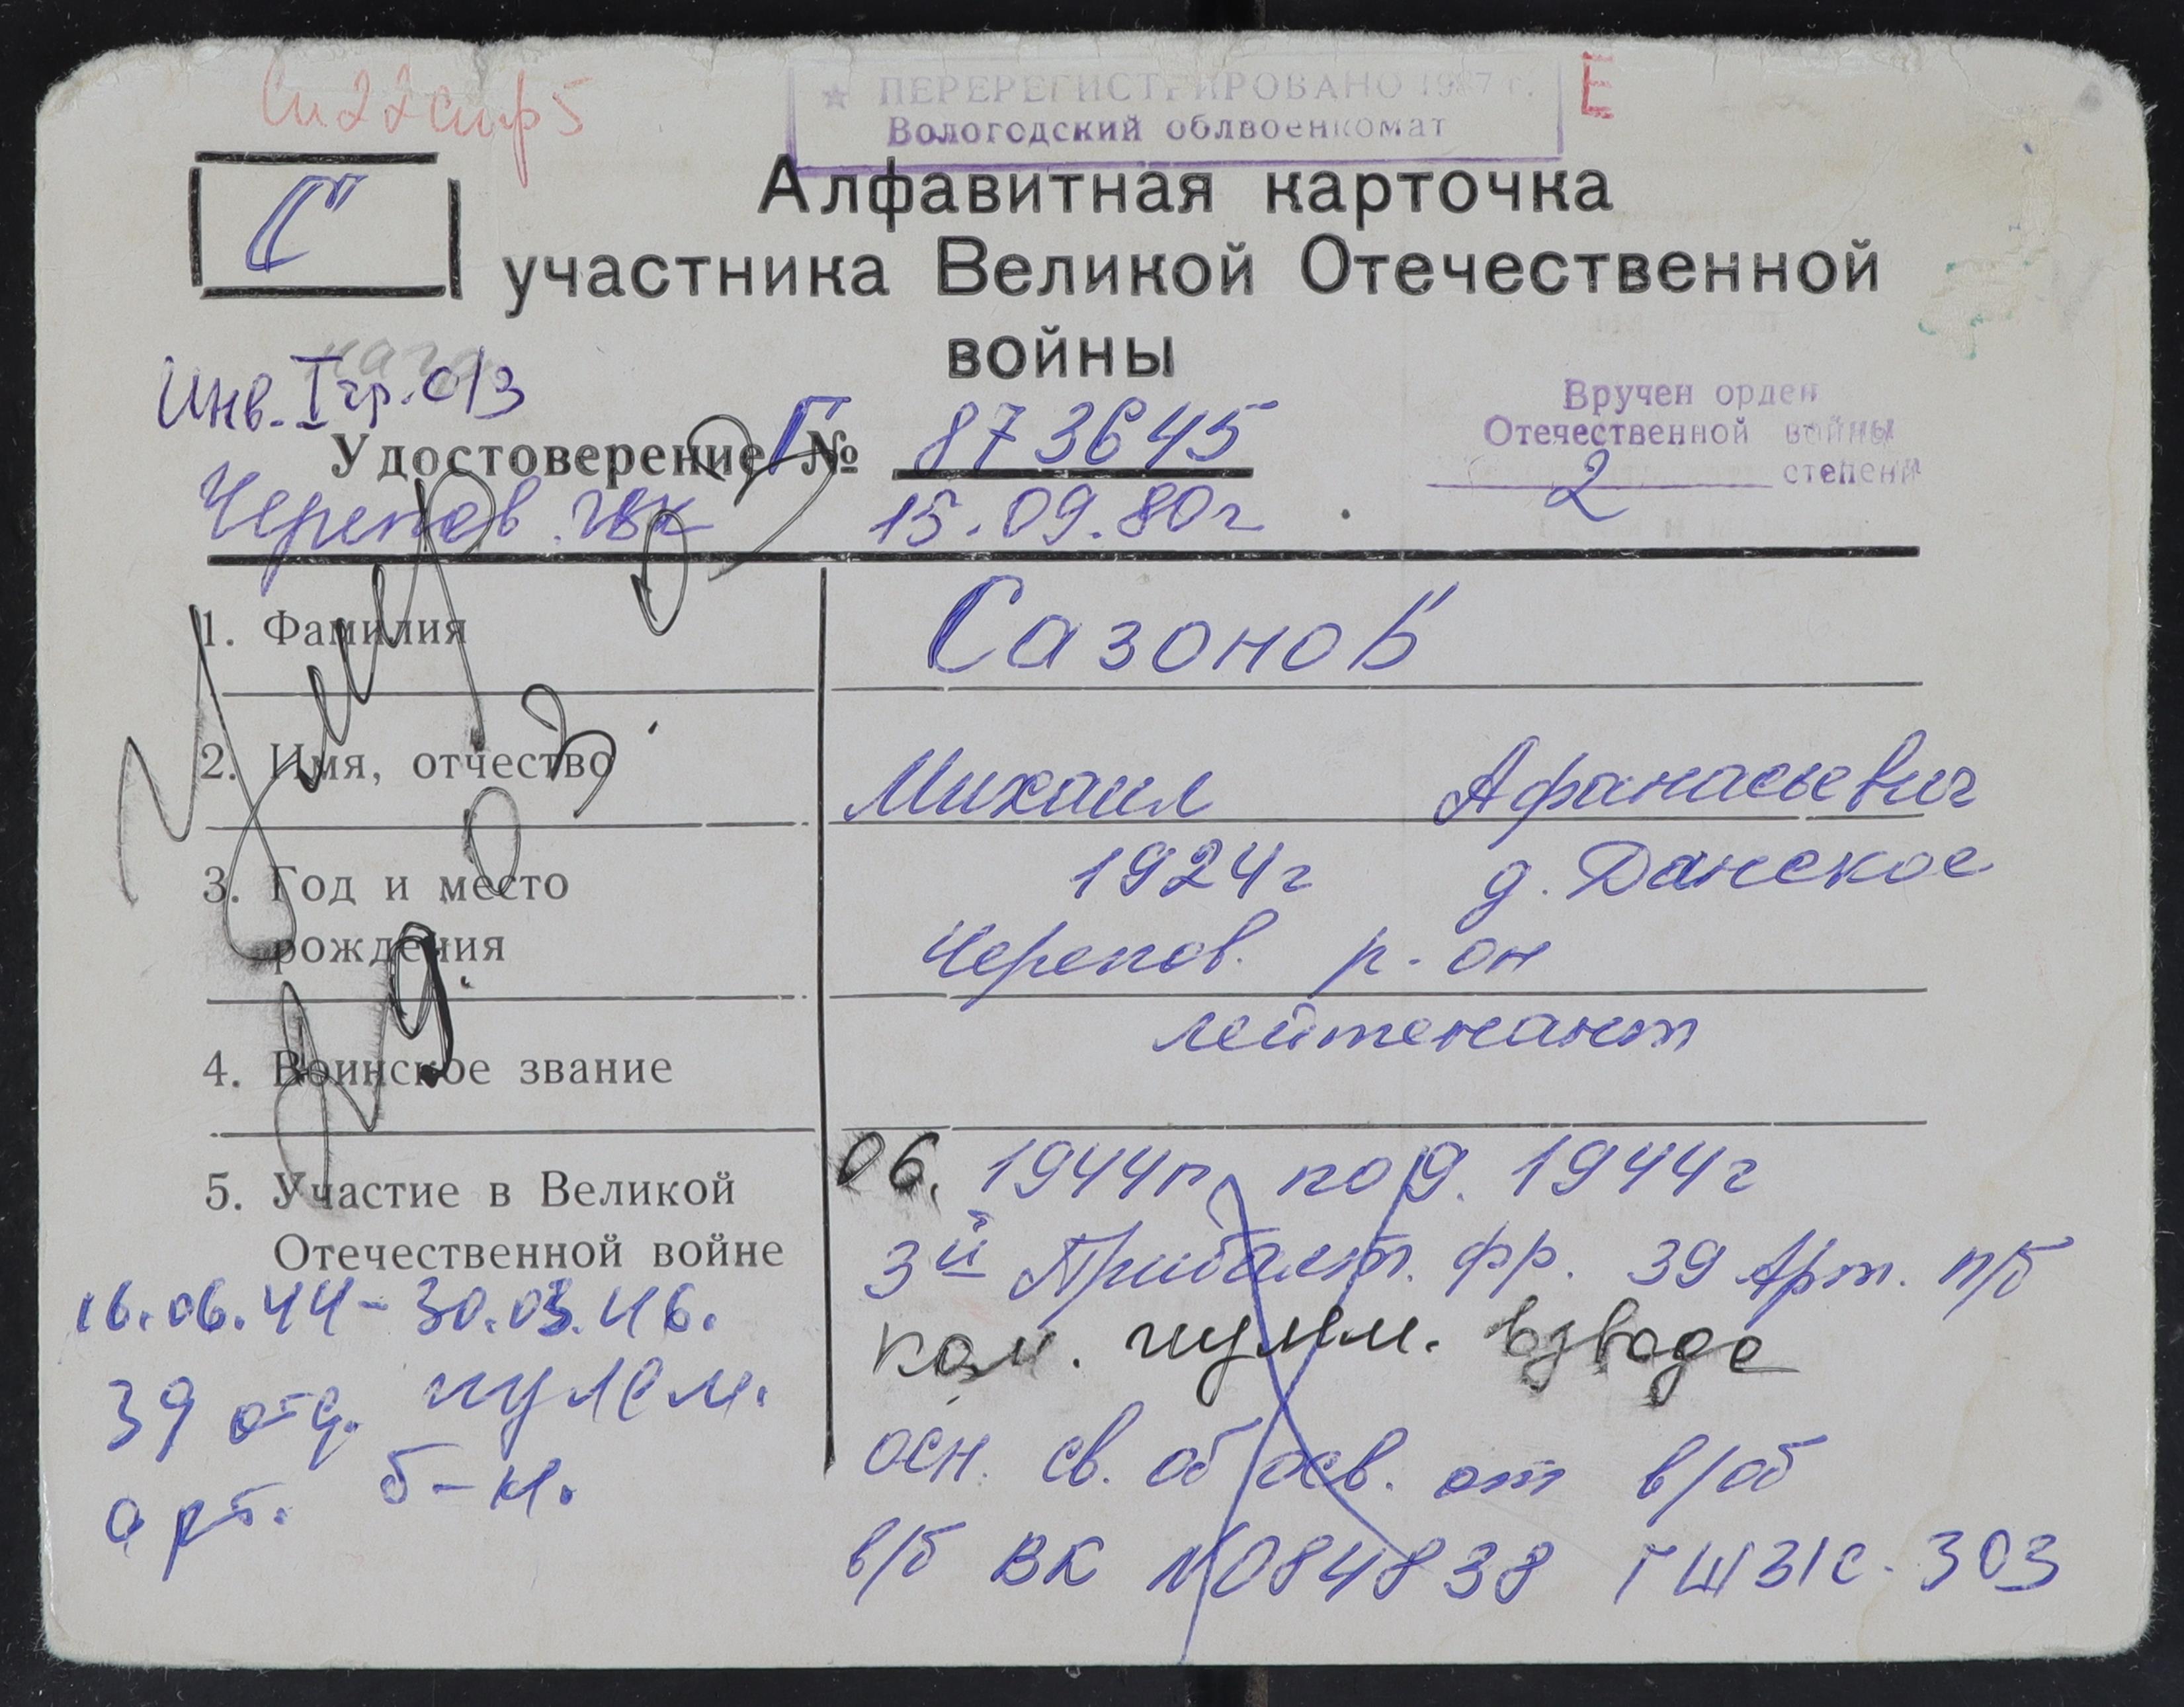 ПЕРЕРЕГИСТРИРОВАНО 1987 г. Е
Вологодский облвоенкомат
С
Алфавитная карточка
участника Великой Отечественной
войны
Инв. I гр. о/з
Вручен орден
Отечественной войны
2 степени
Удостоверение Г № 873645
Черепов. гвк 15.09.80г
1. Фамилия Сазонов
2. Имя, отчество Михаил Афанасьевич
3. Год и место рождения 1924г д. Данское
Черепов. р-он
4. Воинское звание лейтенант
5. Участие в Великой Отечественной войне
06. 1944г по 9. 1944г
3й Прибалт. фр. 39 Арт. п/б
ком. пулем. взвода
осн. св. об осв. от в/об
в/б ВК №084838 ГШ 3/С-303
16.06.44-30.03.46.
39 отд. пулем.
арт. б-н.